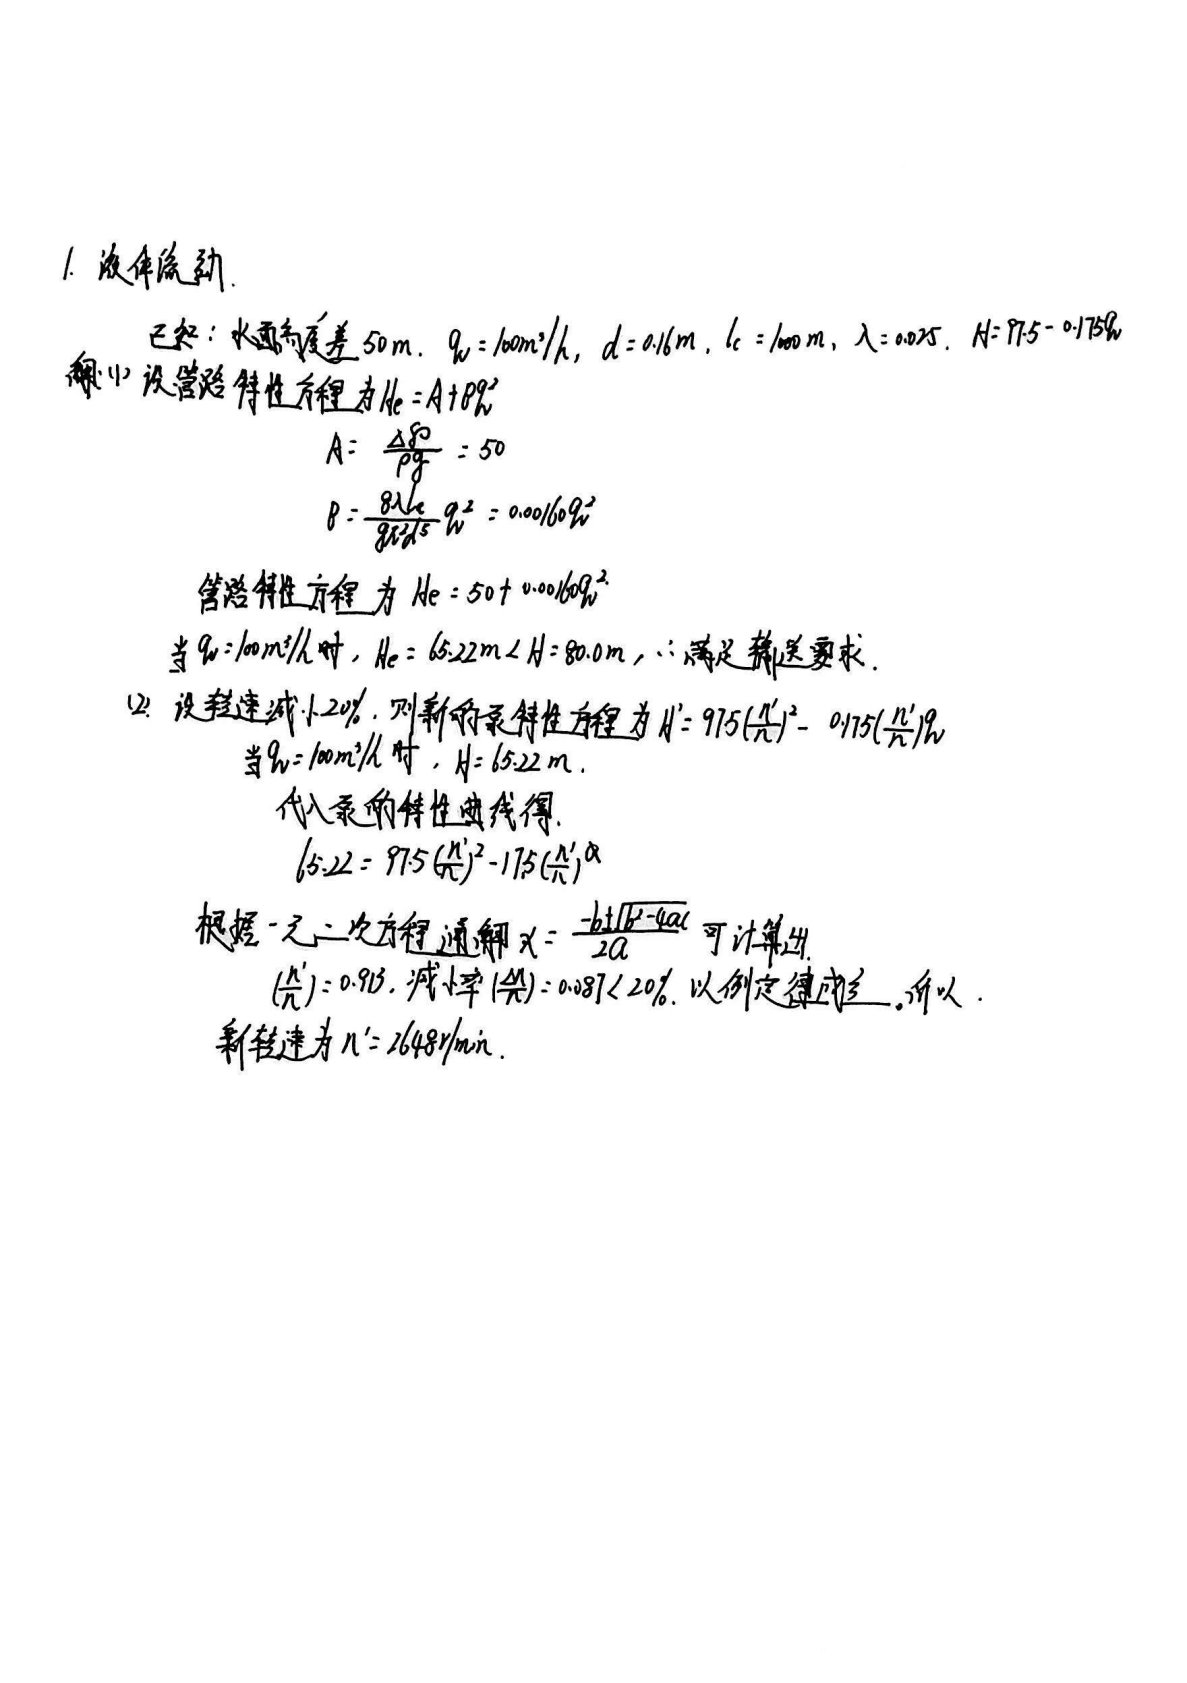 1. 液体流动.
已知: 水面高度差50m. qv=100m³/h, d=0.16m, lc=1000m, λ=0.025. H=97.5-0.175qv
解:(1) 设管路特性方程为He=A+Bqv²
A= Δp/ρg =50
B= 8λle/gπ²d⁵ qv² = 0.00160qv²
管路特性方程为 He=50+0.00160qv²
当qv=100m³/h时, He=65.22m<H=80.0m, ∴满足输送要求.
(2) 设转速减小20%. 则新的泵特性方程为H'=97.5(n'/n)²- 0.175(n'/n)qv
当qv=100m³/h时, H=65.22m.
代入泵的特性曲线得.
65.22=97.5(n'/n)²-17.5(n'/n)
根据一元二次方程通解 x= -b±√b²-4ac/2a 可计算出.
(n'/n)=0.913, 减小率(Δn/n)=0.087<20%. 以例定律成立. 所以.
新转速为n'=2648r/min.